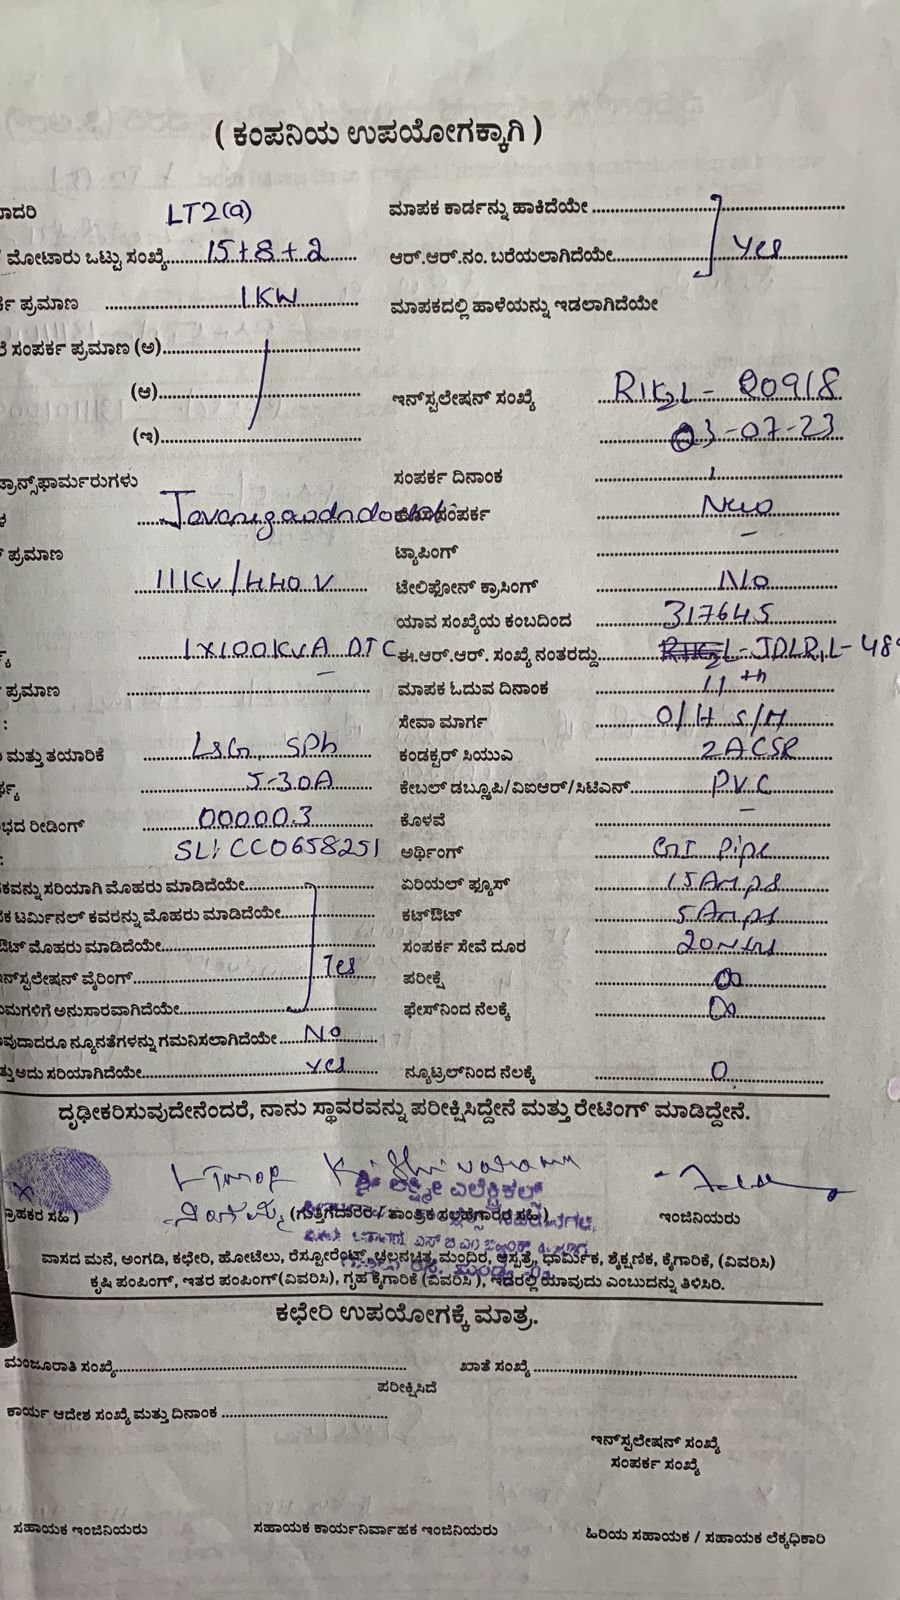 ( ಕಂಪನಿಯ ಉಪಯೋಗಕ್ಕಾಗಿ )
ಾದರಿ LT2(a)
ಮೋಟಾರು ಒಟ್ಟು ಸಂಖ್ಯೆ 15+8+2
ಪ್ರಮಾಣ 1KW
ಸಂಪರ್ಕ ಪ್ರಮಾಣ (ಅ)
(ಆ)
(ಇ)
ಟ್ರಾನ್ಸ್‌ಫಾರ್ಮರುಗಳು
ಪ್ರಮಾಣ
11KV/440V
1X100KVA DTC
ಪ್ರಮಾಣ
ಮತ್ತು ತಯಾರಿಕೆ L&G, SPh
5-30A
ರೀಡಿಂಗ್ 00000.3
SL: CC0658251
ಸರಿಯಾಗಿ ಮೊಹರು ಮಾಡಿದೆಯೇ
ಟರ್ಮಿನಲ್ ಕವರನ್ನು ಮೊಹರು ಮಾಡಿದೆಯೇ
ಮೊಹರು ಮಾಡಿದೆಯೇ
ವೈರಿಂಗ್ Yes
ಅನುಸಾರವಾಗಿದೆಯೇ
ನ್ಯೂನತೆಗಳನ್ನು ಗಮನಿಸಲಾಗಿದೆಯೇ No
ಅದು ಸರಿಯಾಗಿದೆಯೇ Yes
ಮಾಪಕ ಕಾರ್ಡನ್ನು ಹಾಕಿದೆಯೇ
ಆರ್.ಆರ್.ನಂ. ಬರೆಯಲಾಗಿದೆಯೇ Yes
ಮಾಪಕದಲ್ಲಿ ಹಾಳೆಯನ್ನು ಇಡಲಾಗಿದೆಯೇ
ಇನ್‌ಸ್ಟಲೇಷನ್ ಸಂಖ್ಯೆ
03-07-23
ಸಂಪರ್ಕ ದಿನಾಂಕ
ಸಂಪರ್ಕ New
ಟ್ಯಾಪಿಂಗ್ -
ಟೇಲಿಫೋನ್ ಕ್ರಾಸಿಂಗ್ No
ಯಾವ ಸಂಖ್ಯೆಯ ಕಂಬದಿಂದ 317645
ಈ.ಆರ್.ಆರ್. ಸಂಖ್ಯೆ ನಂತರದ್ದು
ಮಾಪಕ ಓದುವ ದಿನಾಂಕ 11th
ಸೇವಾ ಮಾರ್ಗ O/H S/M
ಕಂಡಕ್ಟರ್ ಸಿಯುಎ 2ACSR
ಕೇಬಲ್ ಡಬ್ಲೂಪಿ/ವಿಐಆರ್/ಸಿಟಿಎನ್ PVC
ಕೊಳವೆ -
ಅರ್ಥಿಂಗ್ GI Pipe
ಏರಿಯಲ್ ಫ್ಯೂಸ್ 15Amps
ಕಟ್‌ಔಟ್ 5Amps
ಸಂಪರ್ಕ ಸೇವೆ ದೂರ
ಪರೀಕ್ಷೆ
ಫೇಸ್‌ನಿಂದ ನೆಲಕ್ಕೆ
ನ್ಯೂಟ್ರಲ್‌ನಿಂದ ನೆಲಕ್ಕೆ 0
ದೃಢೀಕರಿಸುವುದೇನೆಂದರೆ, ನಾನು ಸ್ಥಾವರವನ್ನು ಪರೀಕ್ಷಿಸಿದ್ದೇನೆ ಮತ್ತು ರೇಟಿಂಗ್ ಮಾಡಿದ್ದೇನೆ.
ಲಕ್ಷ್ಮೀ ಎಲೆಕ್ಟ್ರಿಕಲ್ಸ್
ಸಹಿ ) (ಗುತ್ತಿಗೆದಾರರ / ತಾಂತ್ರಿಕ ಸಲಹೆಗಾರರ ಸಹಿ ) ಇಂಜಿನಿಯರು
ವಾಸದ ಮನೆ, ಅಂಗಡಿ, ಕಛೇರಿ, ಹೋಟೆಲು, ರೆಸ್ಟೋರೆಂಟ್, ಚಲನಚಿತ್ರ, ಮಂದಿರ, ಆಸ್ಪತ್ರೆ, ಧಾರ್ಮಿಕ, ಶೈಕ್ಷಣಿಕ, ಕೈಗಾರಿಕೆ, (ವಿವರಿಸಿ)
ಕೃಷಿ ಪಂಪಿಂಗ್, ಇತರ ಪಂಪಿಂಗ್(ವಿವರಿಸಿ), ಗೃಹ ಕೈಗಾರಿಕೆ (ವಿವರಿಸಿ ), ಇದರಲ್ಲಿ ಯಾವುದು ಎಂಬುದನ್ನು ತಿಳಿಸಿರಿ.
ಕಛೇರಿ ಉಪಯೋಗಕ್ಕೆ ಮಾತ್ರ.
ಮಂಜೂರಾತಿ ಸಂಖ್ಯೆ ಖಾತೆ ಸಂಖ್ಯೆ
ಪರೀಕ್ಷಿಸಿದೆ
ಕಾರ್ಯ ಆದೇಶ ಸಂಖ್ಯೆ ಮತ್ತು ದಿನಾಂಕ
ಇನ್‌ಸ್ಪಲೇಷನ್ ಸಂಖ್ಯೆ
ಸಂಪರ್ಕ ಸಂಖ್ಯೆ
ಸಹಾಯಕ ಇಂಜಿನಿಯರು ಸಹಾಯಕ ಕಾರ್ಯನಿರ್ವಾಹಕ ಇಂಜಿನಿಯರು ಹಿರಿಯ ಸಹಾಯಕ / ಸಹಾಯಕ ಲೆಕ್ಕಧಿಕಾರಿ